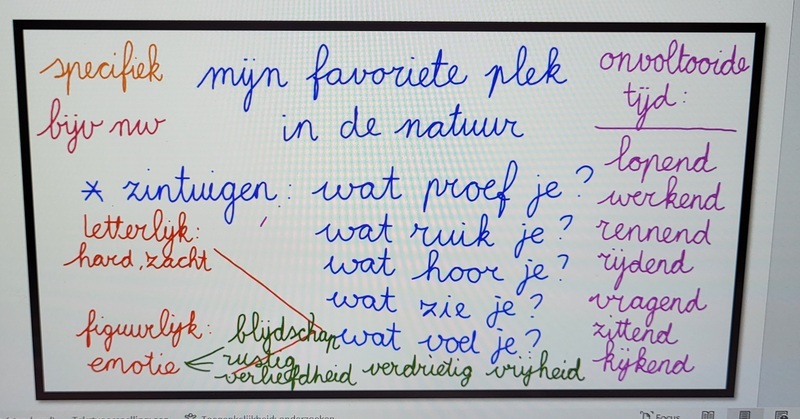 specifiek
mijn favoriete plek
in de natuur
bijv nw
onvoltooide
tijd:
lopend
werkend
rennend
rijdend
vragend
zittend
kijkend
* zintuigen: wat proef je?
wat ruik je?
wat hoor je?
wat zie je?
wat voel je?
letterlijk:
hard, zacht
figuurlijk:
emotie
blijdschap
rustig
verliefdheid verdrietig vrijheid
Focus